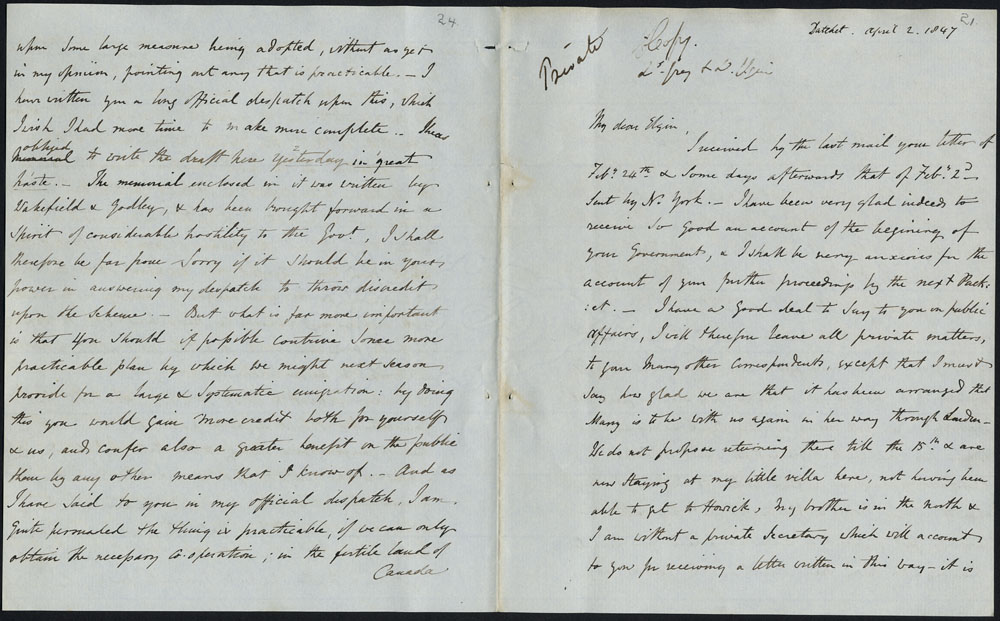 24.
upon some large measure being adopted, without as yet
in my opinion, pointing out any that is practicable. — I
have written you a long official despatch upon this, which
I wish I had more time to make more complete. — I was
obliged
to write the draft here yesterday in great
haste. — The memorial enclosed in it was written by
Wakefield & Godley, & has been brought forward in a
spirit of considerable hostility to the Govt, I shall
therefore be far from sorry if it should be in your
power in answering my despatch to throw discredit
upon the scheme. — But what is far more important
is that you should if possible contrive some more
practicable plan by which we might next season
provide for a large & systematic emigration: by doing
this you would gain more credit both for yourself
& us, and confer also a greater benefit on the public
than by any other means that I know of. — And as
I have said to you in my official despatch, I am
quite persuaded the thing is practicable, if we can only
obtain the necessary co-operation; in the fertile land of
Canada
21.
Private
Copy.
Ld. Grey to Ld. Elgin
Datchet. April 2. 1847
My dear Elgin,
I received by the last mail your letter of
Feby. 24th. & some days afterwards that of Feby. 2d —
sent by N. York. — I have been very glad indeed to
receive so good an account of the begining of
your Government, & I shall be very anxious for the
account of your further proceedings by the next Pack:
:et. — I have a good deal to say to you on public
affairs, I will therefore leave all private matters,
to your many other correspondents, except that I must
say how glad we are that it has been arranged that
Mary is to be with us again in her way through London —
We do not propose returning there till the 15th. & are
now staying at my little villa here, not having been
able to get to Howick, my brother is in the north &
I am without a private Secretary which will account
to you for receiving a letter written in this way — it is